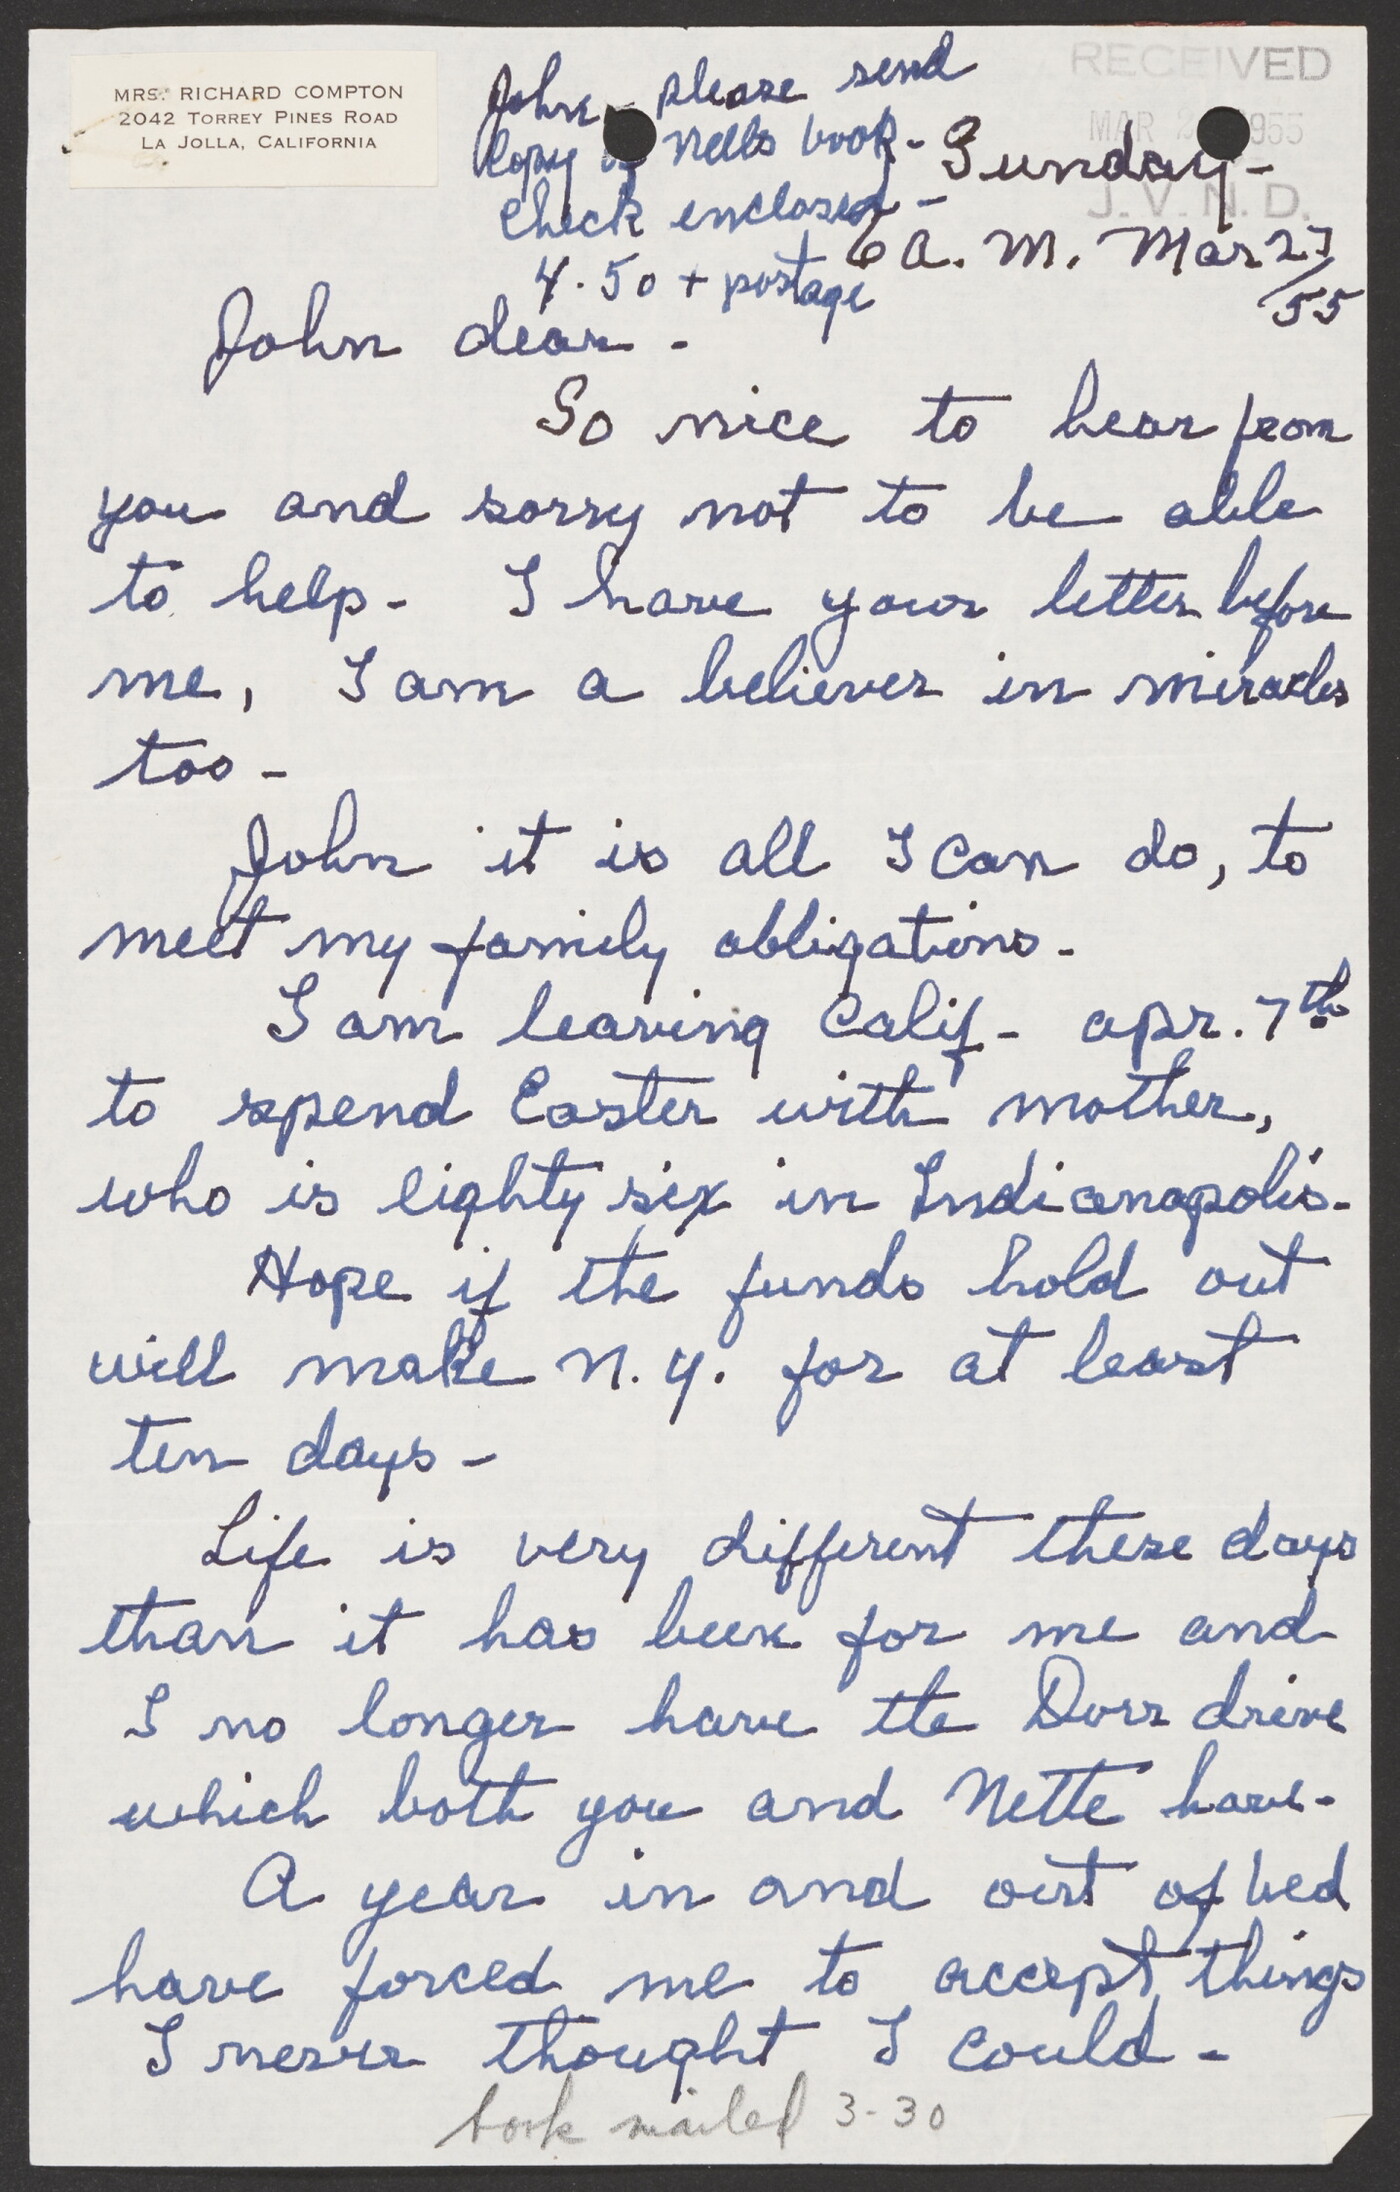 MRS. RICHARD COMPTON
2042 TORREY PINES ROAD
LA JOLLA, CALIFORNIA
RECEIVED
MAR 2 1955
J. V. N. D.
John please send
Copy of Nells book -
Check enclosed -
4.50 + postage
Sunday -
6 A. M. Mar 27
/55
John dear -
So nice to hear from
you and sorry not to be able
to help - I have your letter before
me, I am a believer in miracles
too -
John it is all I can do, to
meet my family obligations -
I am leaving Calif - apr. 7th
to spend Easter with mother,
who is eighty six in Indianapolis -
Hope if the funds hold out
will make N. Y. for at least
ten days -
Life is very different these days
than it has been for me and
I no longer have the Dorr drive
which both you and Nette have -
A year in and out of bed
have forced me to accept things
I never thought I could -
book mailed 3-30